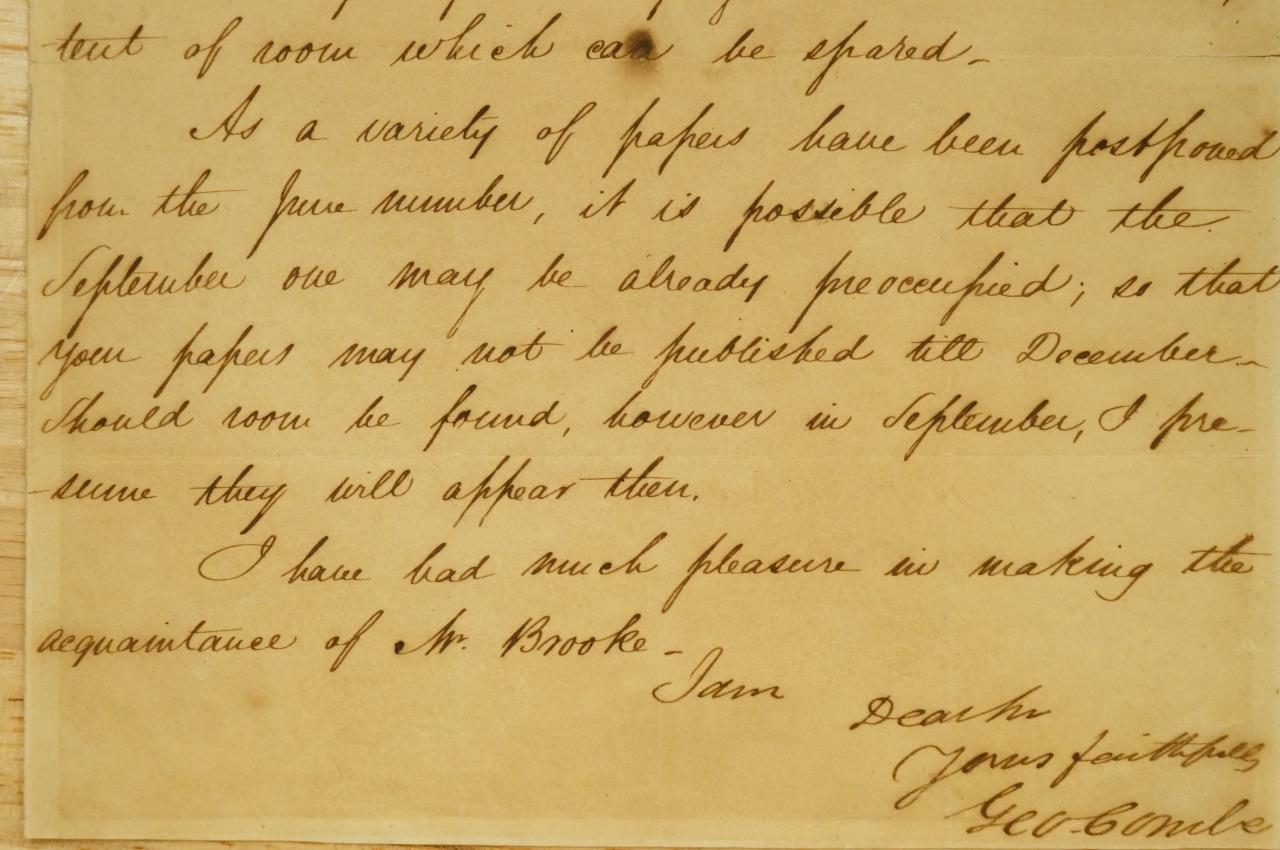 tent of room which can be spared_
As a variety of papers have been postponed
from the June number, it is possible that the
September one may be already preoccupied; so that
your papers may not be published till December_
Should room be found, however in September, I pre-
-sume they will appear then.
I have had much pleasure in making the
acquaintance of Mr. Brooke_
I am
Dear Sir
Yours faithfully
Geo. Combe